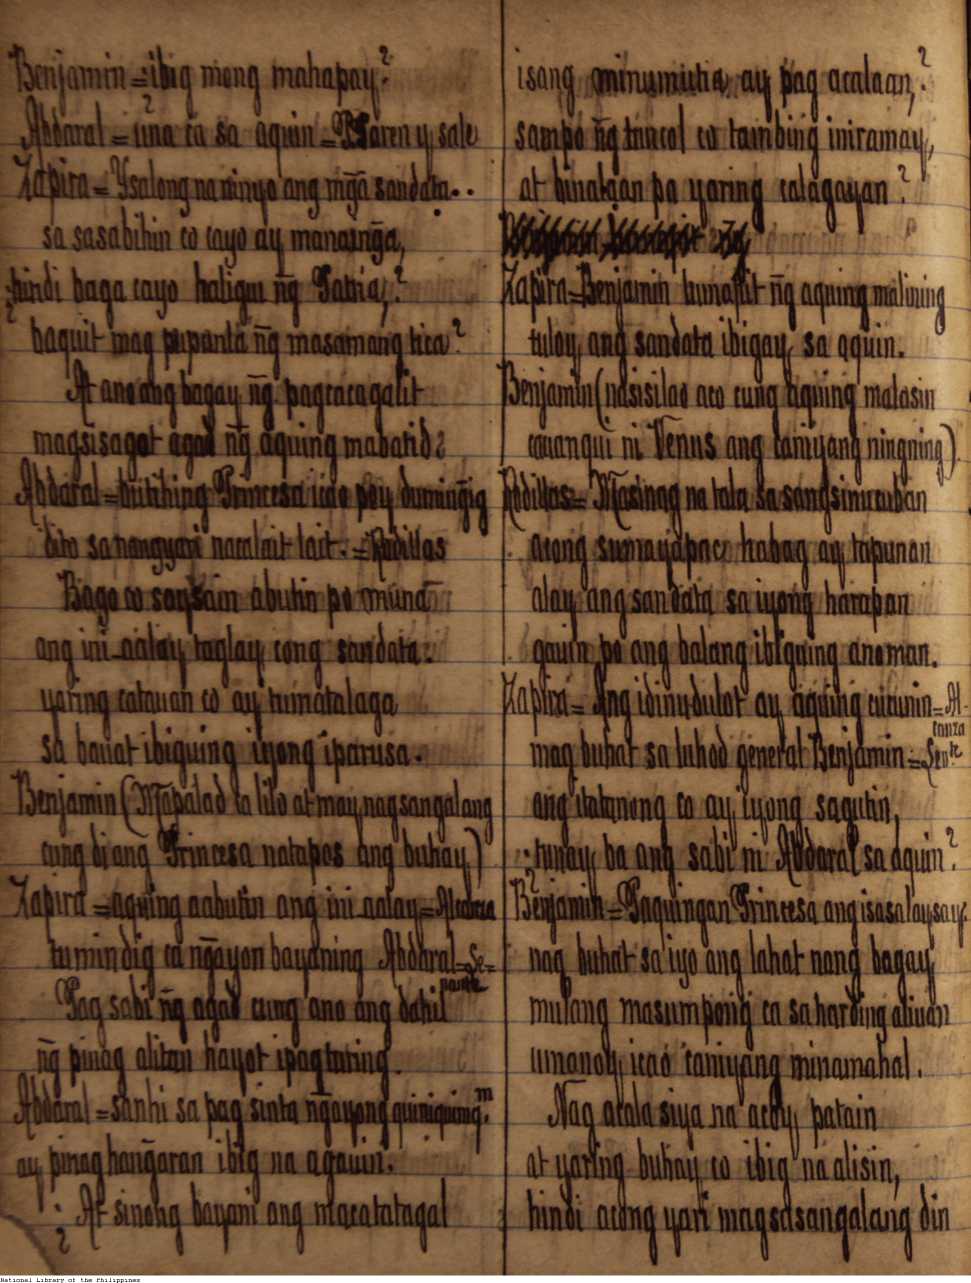 Benjamin = ibig mong mahapay?
Abdaral = una ca sa aquin = Naren y sale
Zapira = Ysalong na ninyo ang mḡa sandata..
sa sasabihin co cayo ay manainḡa,
hindi baga cayo haligui nḡ Patria,?
baquit mag pupanta nḡ masamang tica?
At ano ang bagay nḡ pagcacagalit
magsisagot agad nḡ aquing mabatid?
Abdaral = buti hing Princesa icao poy duminḡig
dito sa nangyari nacalait lait. = Rodillas
Bago co saysain abutin po muna
ang ini aalay taglay cong sandata.
yaring catauan co ay tumatalaga
sa bauat ibiguing iyong iparusa.
Benjamin (Mapalad ta lilo at may nagsangalang
cung di ang Princesa natapos ang buhay)
Zapira = aquing aabutin ang ini aalay =
tumindig ca nḡayon bayaning Abdaral = Se=
parate
Pag sabi nḡ agad cung ano ang dahil
nḡ pinag alitan hayot ipagturing.
Abdaral = sanhi sa pag sinta nḡayong
ay pinag hanḡaran ibig na agauin.
¿At sinong bayani ang macatatagal
isang minumutia ay pag acalaan,?
sampo nḡ tuncol co tambing iniramay,
at binataan pa yaring calagayan?
Zapira = Benjamin hunapit nḡ aquing malining
tuloy ang sandata ibigay sa aquin.
Benjamin (nasisilao aco cung aquing malasin
cauangui ni Venus ang caniyang ningning)
Rodillas = Masinag na tala sa sangsinucuban
acong sumayapacc habag ay tapunan
alay ang sandata sa iyong harapan
gauin po ang balang ibiguing anoman.
Zapira = Ang idinudulot ay aquing cucunin = Al-
canza
mag buhat sa luhod general Benjamin =
ang itatanong co ay iyong sagutin,
¿tunay ba ang sabi ni Abdaral sa aquin?
Benjamin = Paquingan Princesa ang isasalaysay
nag buhat sa iyo ang lahat nang bagay
mulang masumpong ca sa harding aliuan
umanoy icao caniyang minamahal.
Nag acala siya na acoy patain
at yaring buhay co ibig na alisin,
hindi acong yari magsasangalang din
National Library of the Philippines